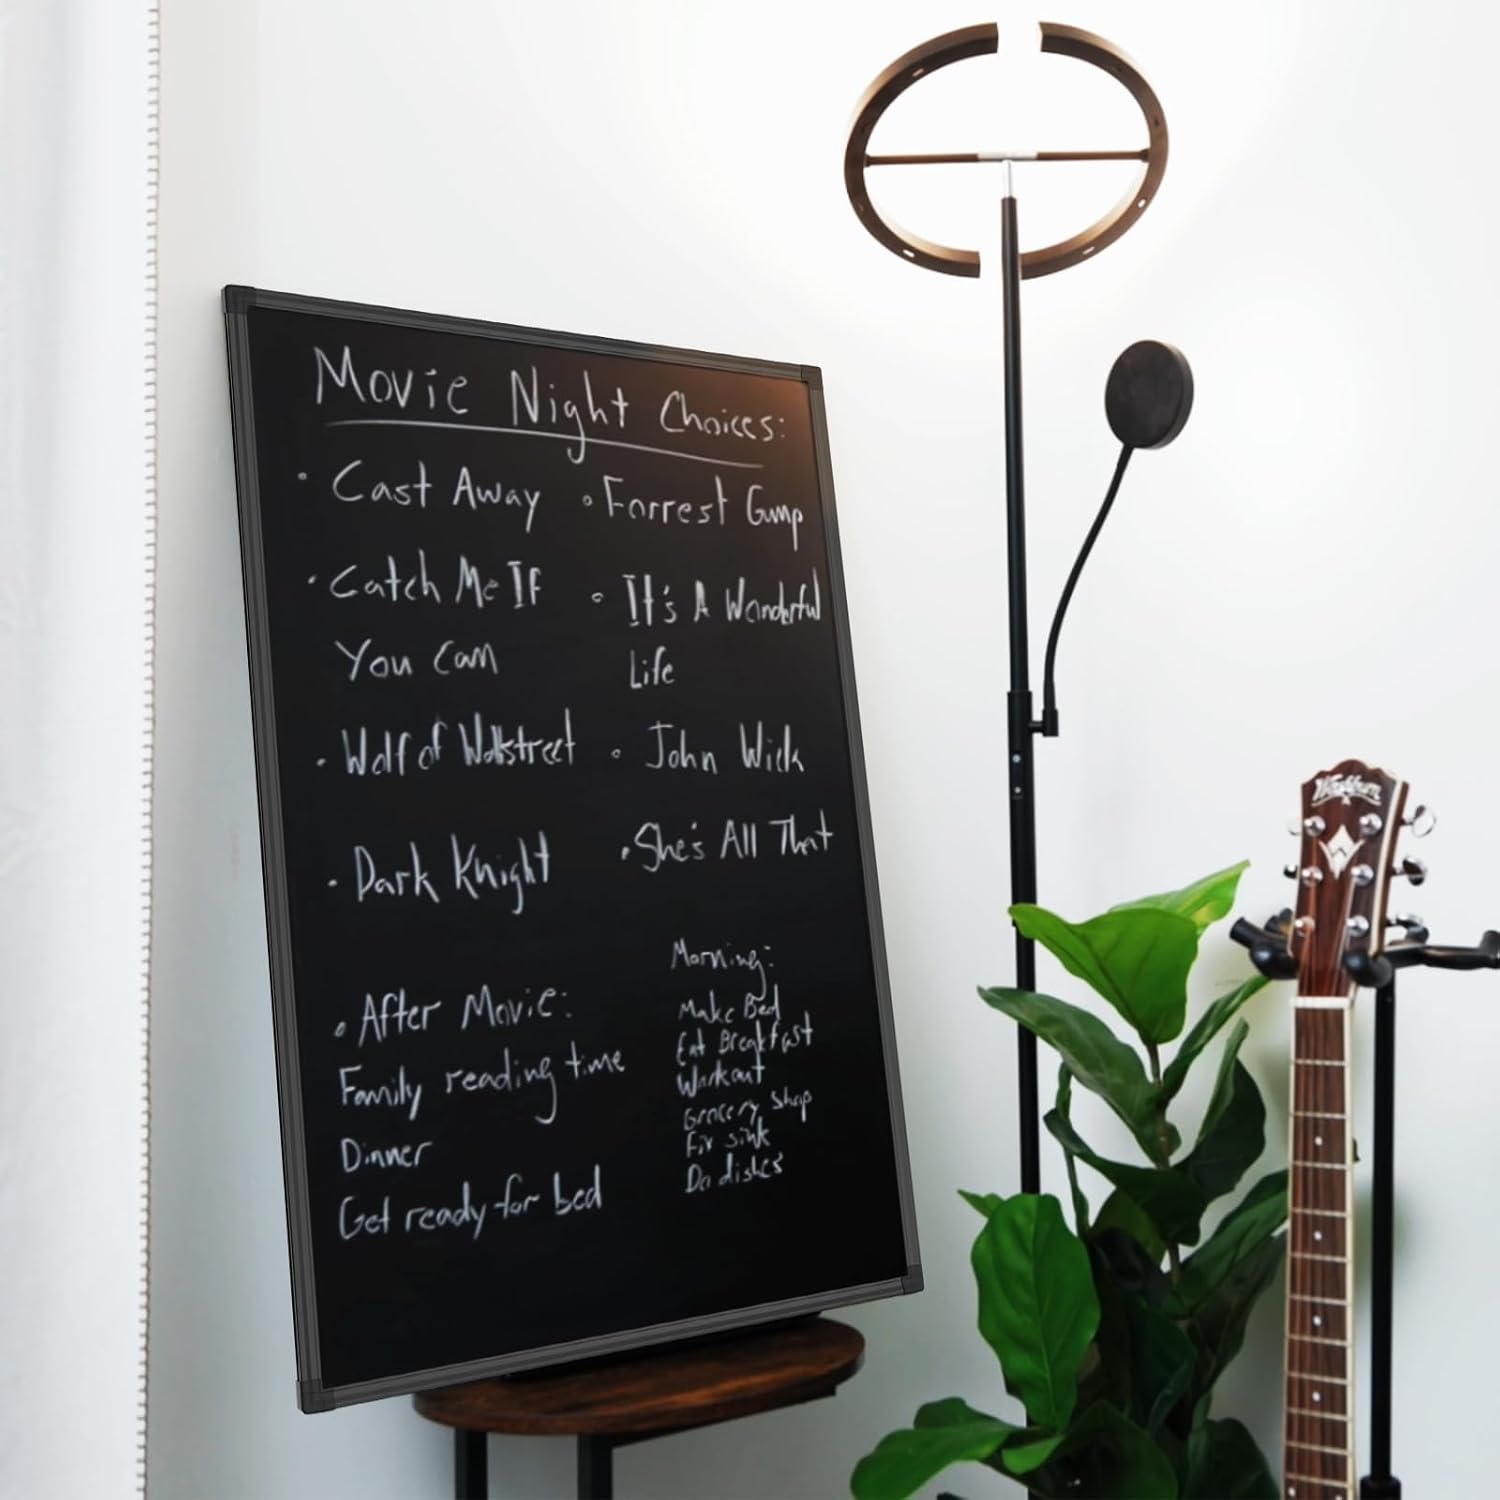 Movie Night Choices:
• Cast Away
• Catch Me If
You Can
• Wolf of Wallstreet
• Dark Knight
• Forrest Gump
• It's A Wonderful
Life
• John Wick
• She's All That
• After Movie:
Family reading time
Dinner
Get ready for bed
Morning:
Make Bed
Eat Breakfast
Workout
Grocery shop
Fix sink
Do dishes
Washburn